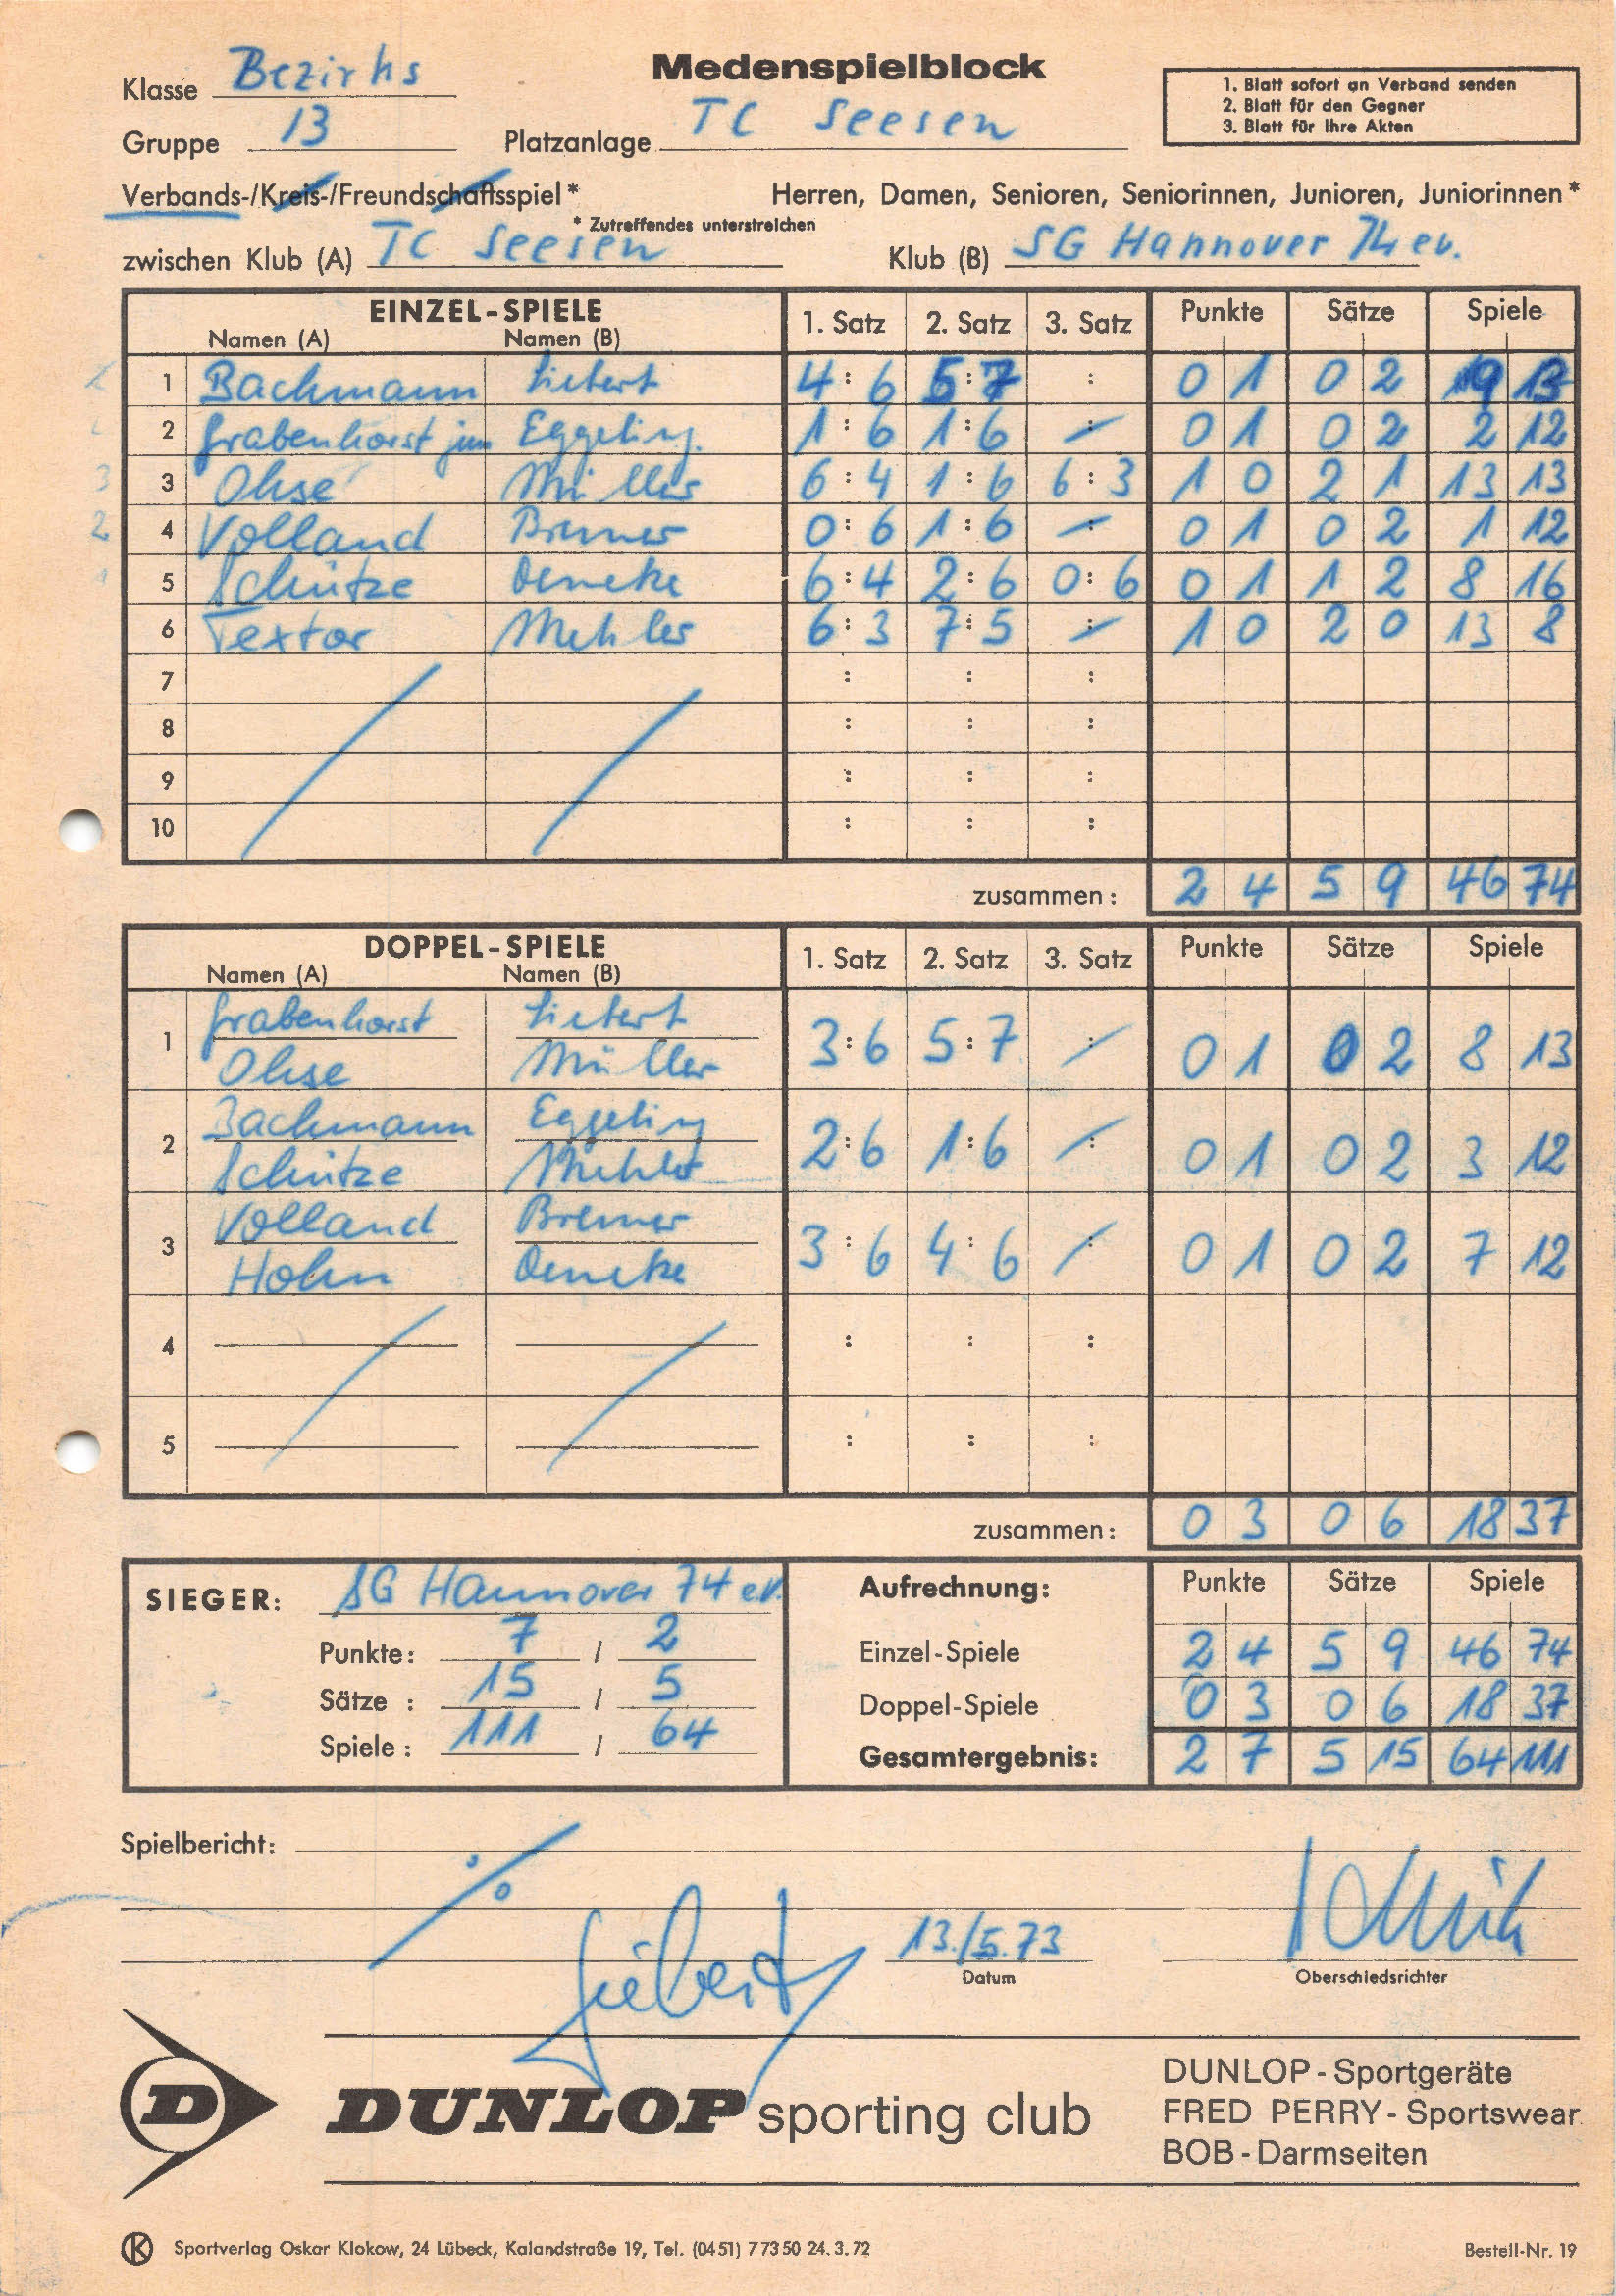 Medenspielblock
Klasse Bezirks
Gruppe 13 Platzanlage TC Seesen
1. Blatt sofort an Verband senden
2. Blatt für den Gegner
3. Blatt für Ihre Akten
Verbands-/Kreis-/Freundschaftsspiel* Herren, Damen, Senioren, Seniorinnen, Junioren, Juniorinnen*
* Zutreffendes unterstreichen
zwischen Klub (A) TC Seesen Klub (B) SG Hannover 74 ev.
EINZEL-SPIELE 1. Satz 2. Satz 3. Satz Punkte Sätze Spiele
Namen (A) Namen (B)
1 Bachmann Siebert 4:6 5:7 : 0 1 0 2 9 13
2 Grabenhorst jun Eggeling. 1:6 1:6 : 0 1 0 2 2 12
3 Ohse Müller 6:4 1:6 6:3 1 0 2 1 13 13
4 Volland Bremer 0:6 1:6 : 0 1 0 2 1 12
5 Schütze Deneke 6:4 2:6 0:6 0 1 1 2 8 16
6 Textor Mehler 6:3 7:5 : 1 0 2 0 13 8
7 : : :
8 : : :
9 : : :
10 : : :
zusammen: 2 4 5 9 46 74
DOPPEL-SPIELE 1. Satz 2. Satz 3. Satz Punkte Sätze Spiele
Namen (A) Namen (B)
Grabenhorst Siebert
1 3:6 5:7 : 0 1 0 2 8 13
Ohse Müller
Bachmann Eggeling
2 2:6 1:6 : 0 1 0 2 3 12
Schütze Mehler
Volland Bremer
3 3:6 4:6 : 0 1 0 2 7 12
Hohn Deneke
4 : : :
5 : : :
zusammen: 0 3 0 6 18 37
SIEGER: SG Hannover 74 e.V. Aufrechnung: Punkte Sätze Spiele
Punkte: 7 / 2 Einzel-Spiele 2 4 5 9 46 74
Sätze : 15 / 5 Doppel-Spiele 0 3 0 6 18 37
Spiele : 111 / 64 Gesamtergebnis: 2 7 5 15 64 111
Spielbericht:
Siebert 13./5.73
Datum Oberschiedsrichter
D DUNLOP sporting club
DUNLOP - Sportgeräte
FRED PERRY - Sportswear
BOB - Darmseiten
K Sportverlag Oskar Klokow, 24 Lübeck, Kalandstraße 19, Tel. (0451) 77350 24.3.72 Bestell-Nr. 19